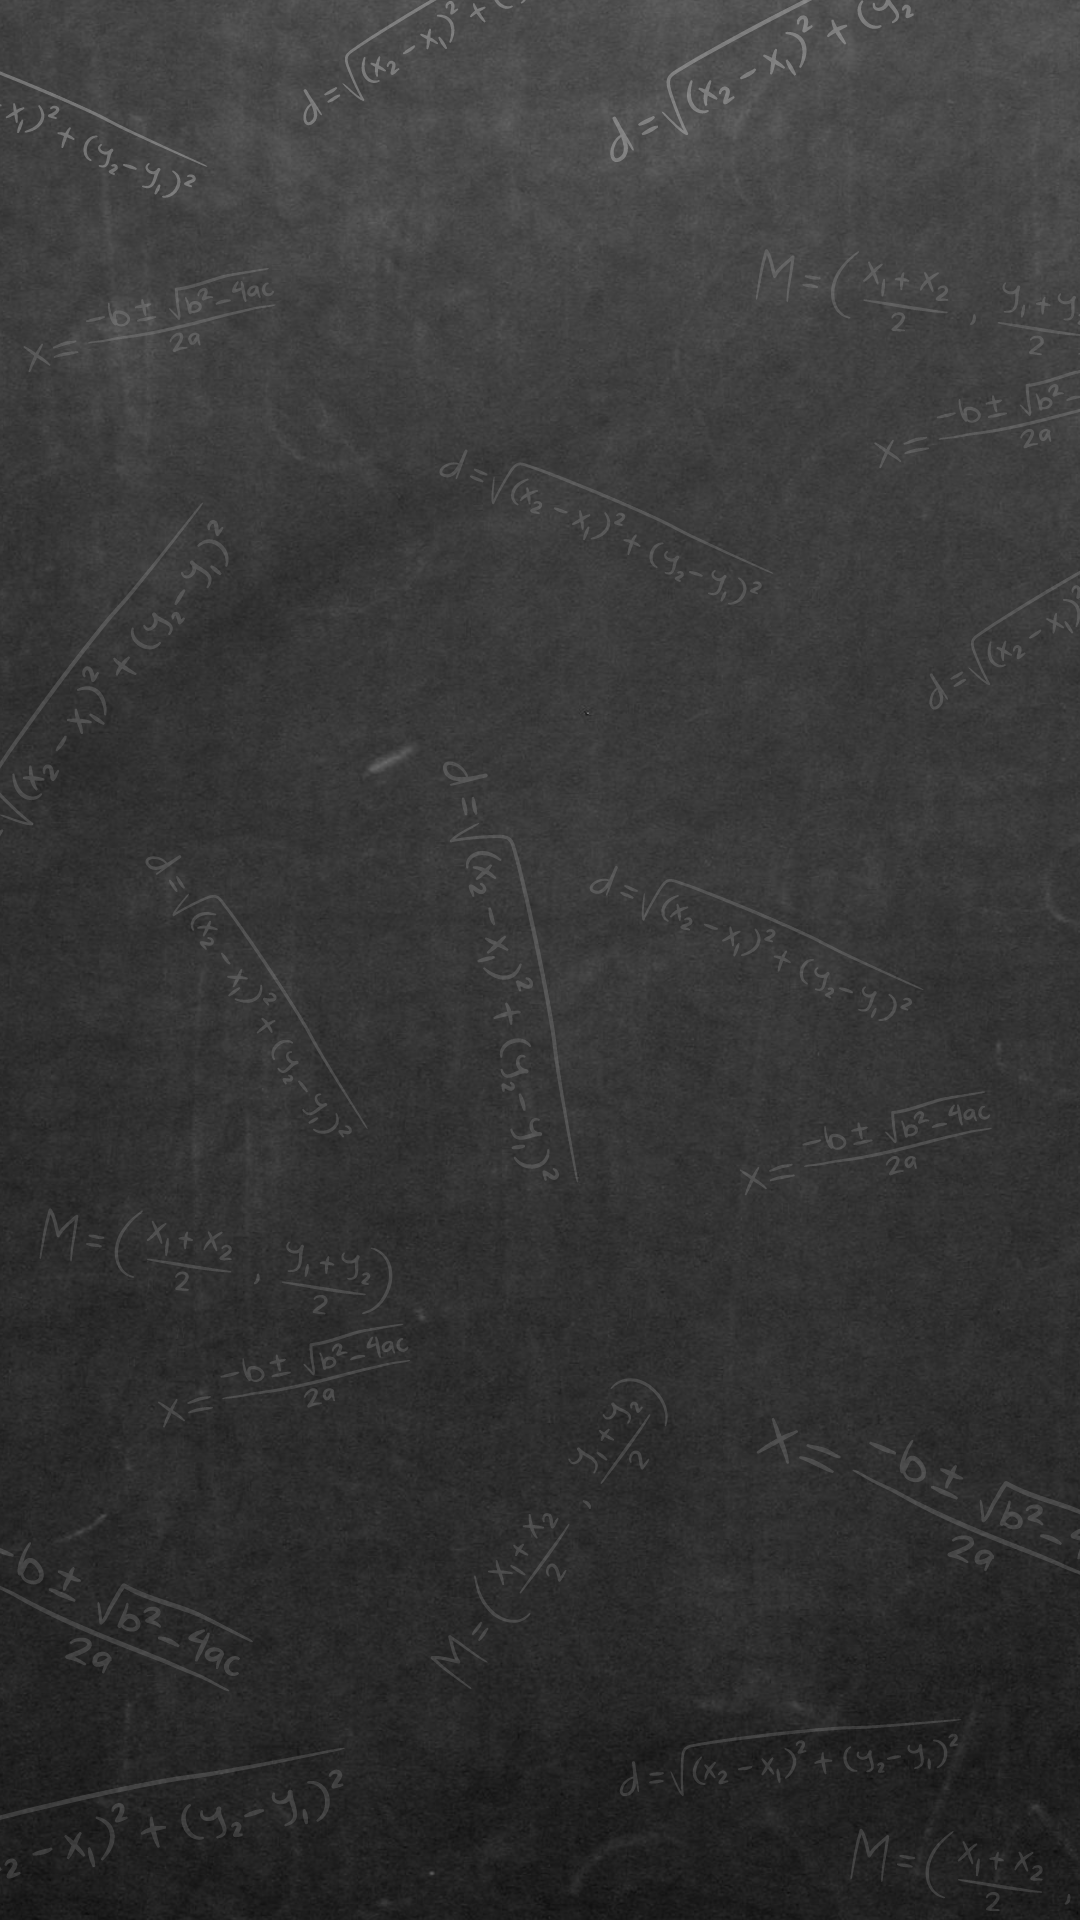 d = √(x₂ - x₁)² + (
d = √(x₂ - x₁)² + (y₂
x₁)² + (y₂ - y₁)²
x = -b ± √b² - 4ac / 2a
M = (x₁ + x₂ / 2 , y₁ + y / 2
x = -b ± √b² - / 2a
d = √(x₂ - x₁)² + (y₂ - y₁)²
√(x₂ - x₁)² + (y₂ - y₁)²
d = √(x₂ - x₁)²
d = √(x₂ - x₁)² + (y₂ - y₁)²
d = √(x₂ - x₁)² + (y₂ - y₁)²
d = √(x₂ - x₁)² + (y₂ - y₁)²
x = -b ± √b² - 4ac / 2a
M = (x₁ + x₂ / 2 , y₁ + y₂ / 2)
x = -b ± √b² - 4ac / 2a
M = (x₁ + x₂ / 2 , y₁ + y₂ / 2)
x = -b ± √b² - 4 / 2a
-b ± √b² - 4ac / 2a
d = √(x₂ - x₁)² + (y₂ - y₁)²
₂ - x₁)² + (y₂ - y₁)²
M = (x₁ + x₂ / 2 ,